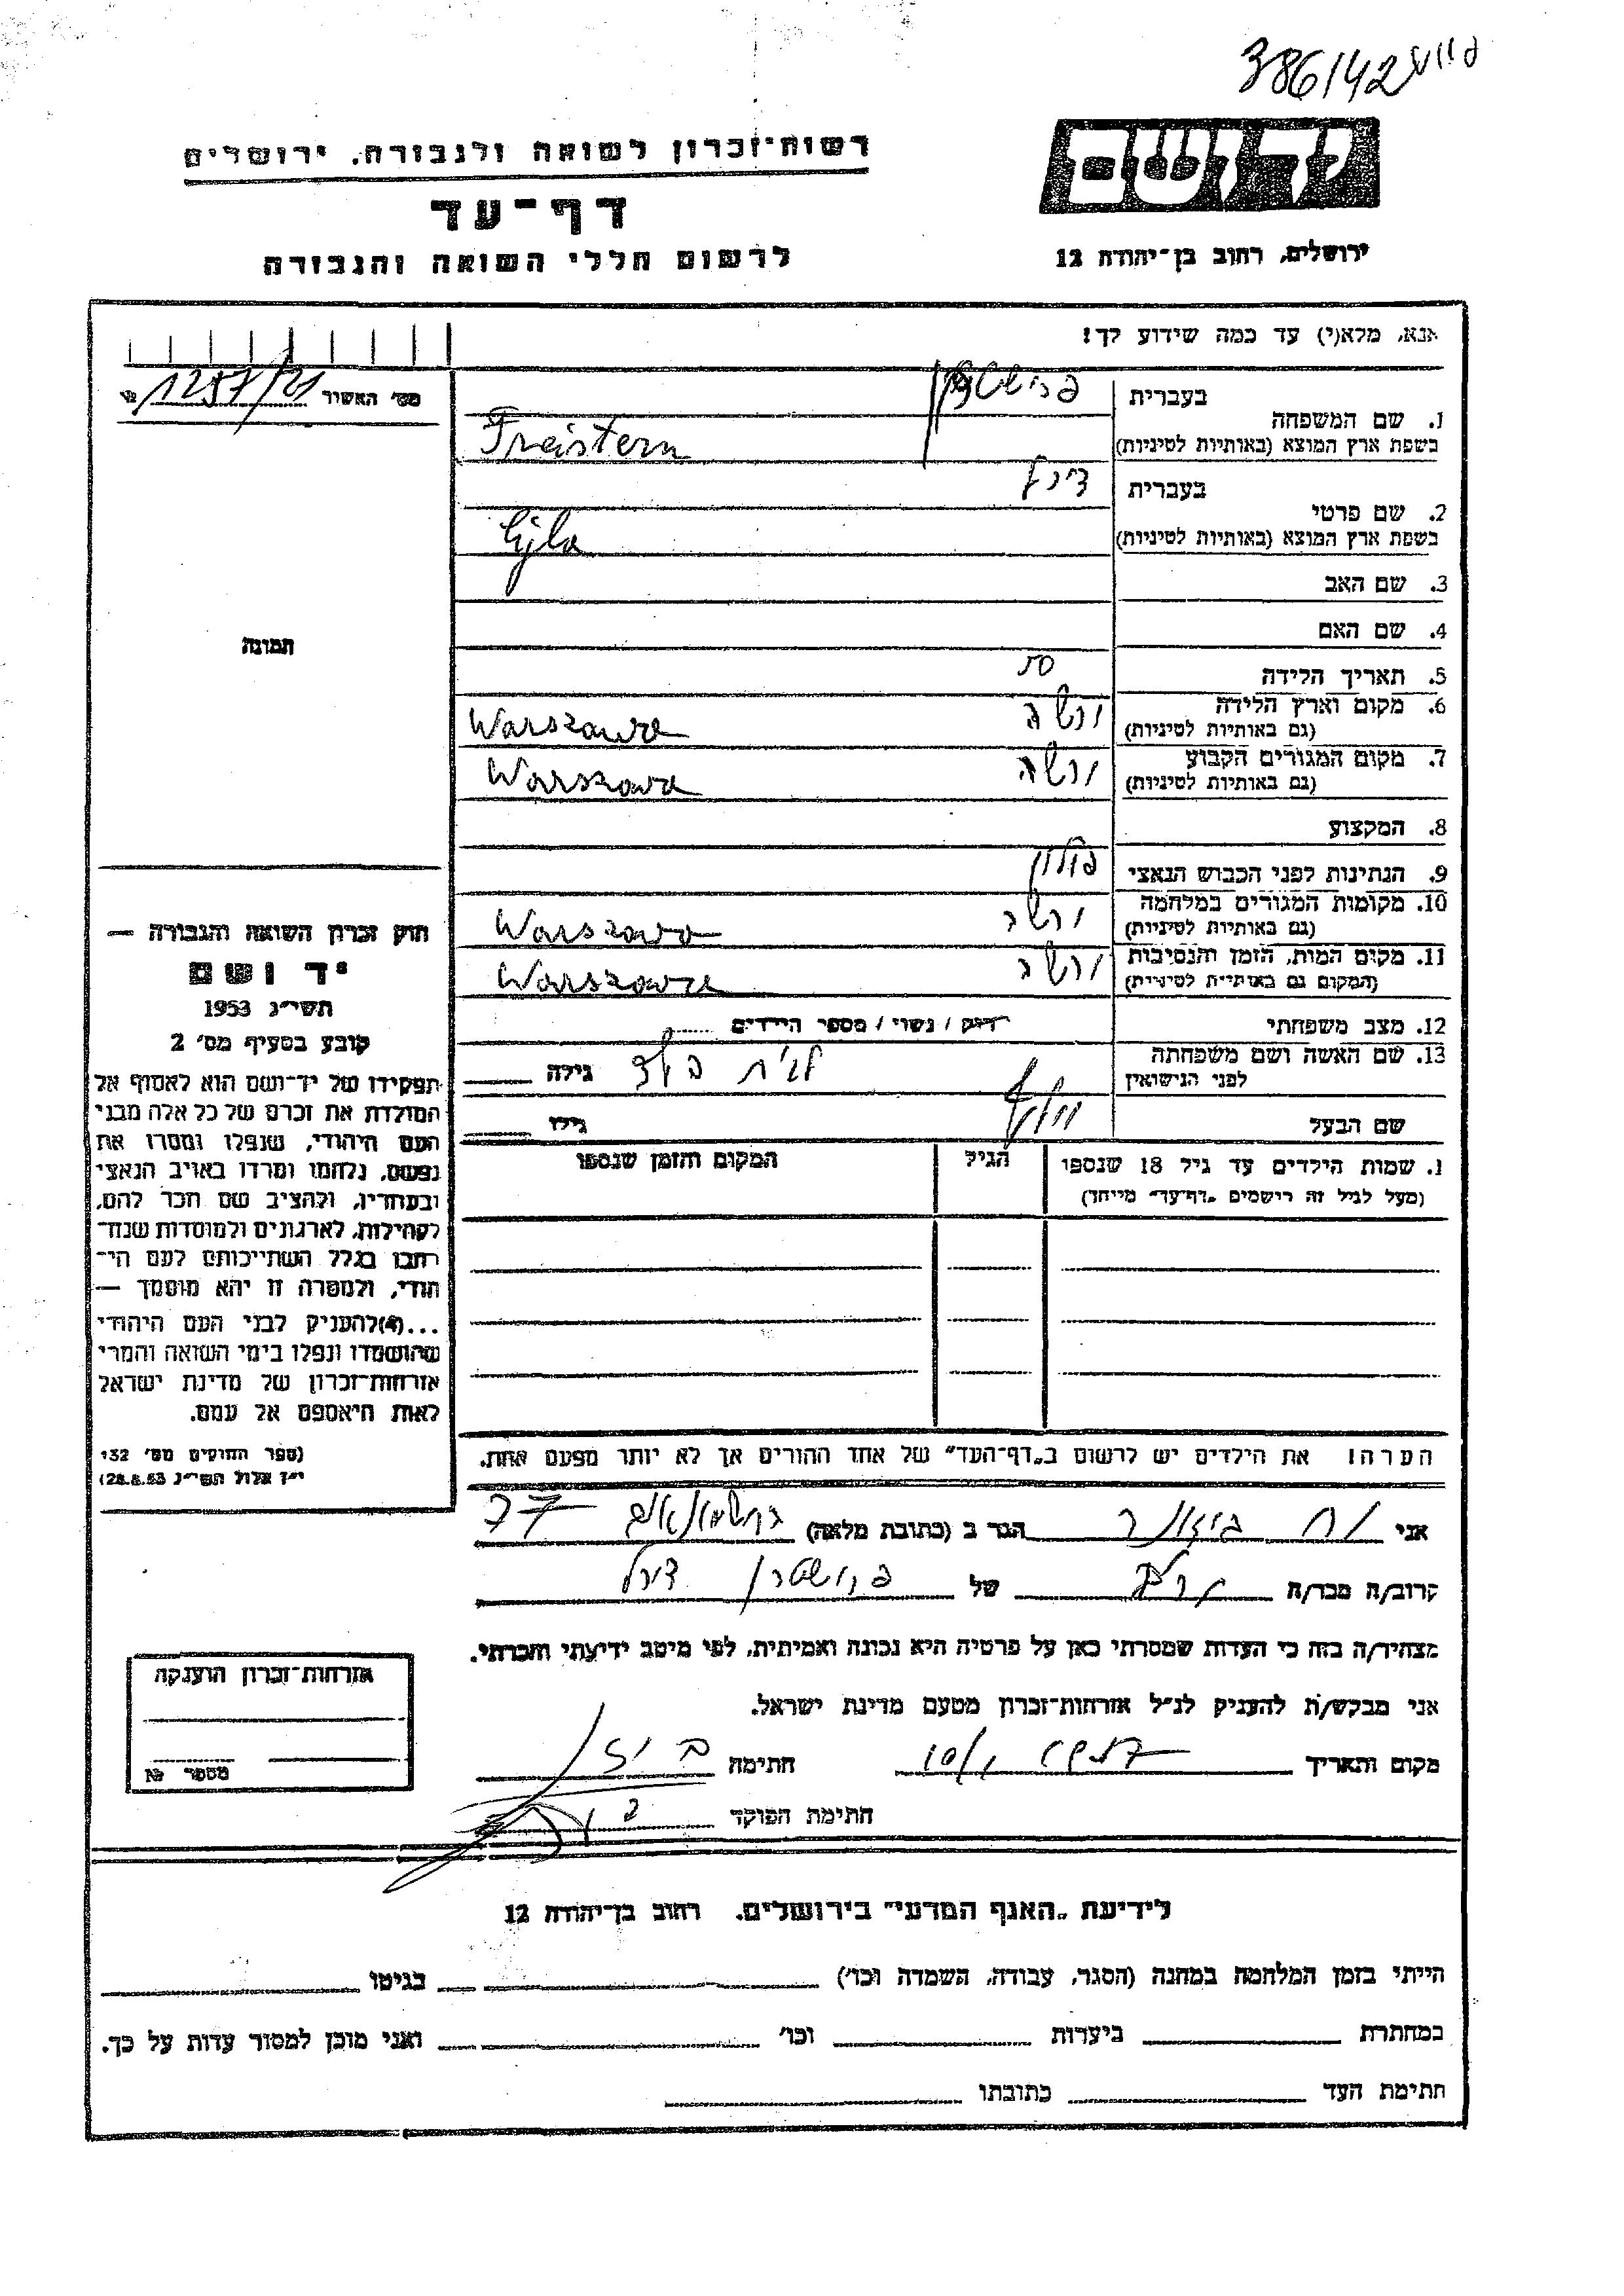 386142
רשות־זכרון לשואה ולגבורה, ירושלים
דף־עד
לרשום חללי השואה והגבורה
ידושם
ירושלים, רחוב בן־יהודה 12
אנא, מלא(י) עד כמה שידוע לך!
מס׳ האשור 1257/21
1. שם המשפחה
בעברית
בשפת ארץ המוצא (באותיות לטיניות) Freistern
2. שם פרטי
בעברית
בשפת ארץ המוצא (באותיות לטיניות)
3. שם האב
4. שם האם
5. תאריך הלידה 50
6. מקום וארץ הלידה
(גם באותיות לטיניות) ורשה Warszawa
7. מקום המגורים הקבוע
(גם באותיות לטיניות) ורשה Warszawa
8. המקצוע
9. הנתינות לפני הכבוש הנאצי פולין
10. מקומות המגורים במלחמה
(גם באותיות לטיניות) ורשה Warszawa
11. מקום המות, הזמן והנסיבות
(המקום גם באותיות לטיניות) ורשה Warszawa
12. מצב משפחתי רווק / נשוי / מספר הילדים
13. שם האשה ושם משפחתה
לפני הנישואין לבית גילה
שם הבעל גילו
1. שמות הילדים עד גיל 18 שנספו
(מעל לגיל זה רישמים „דף־עד״ מייחד)
הגיל
המקום והזמן שנספו
הערה! את הילדים יש לרשום ב„דף־העד״ של אחד ההורים אך לא יותר מפעם אחת.
תמונה
חוק זכרון השואה והגבורה —
יד ושם
תשי״ג 1953
קובע בסעיף מס׳ 2
תפקידו של יד־ושם הוא לאסוף אל
המולדת את זכרם של כל אלה מבני
העם היהודי, שנפלו ומסרו את
נפשם, נלחמו ומרדו באויב הנאצי
ובעוזריו, ולהציב שם וזכר להם,
לקהילות, לארגונים ולמוסדות שנח־
רבו בגלל השתייכותם לעם הי־
הודי, ולמטרה זו יהא מוסמך —
...(4)להעניק לבני העם היהודי
שהושמדו ונפלו בימי השואה והמרי
אזרחות־זכרון של מדינת ישראל
לאות היאספם אל עמם.
(ספר החוקים מס׳ 132
י״ז אלול תשי״ג 28.8.53)
אני הגר ב (כתובת מלאה)
קרוב/ה מכר/ה של פרישטרן
מצהיר/ה בזה כי העדות שמסרתי כאן על פרטיה היא נכונה ואמיתית, לפי מיטב ידיעתי והכרתי.
אני מבקש/ת להעניק לנ״ל אזרחות־זכרון מטעם מדינת ישראל.
מקום ותאריך חתימה
חתימת הפוקד
אזרחות־זכרון הוענקה
מספר №
לידיעת „האגף המדעי״ בירושלים. רחוב בן־יהודה 12
הייתי בזמן המלחמה במחנה (הסגר, עבודה, השמדה וכו׳) בגיטו
במחתרת ביערות וכו׳ ואני מוכן למסור עדות על כך.
חתימת העד כתובתו